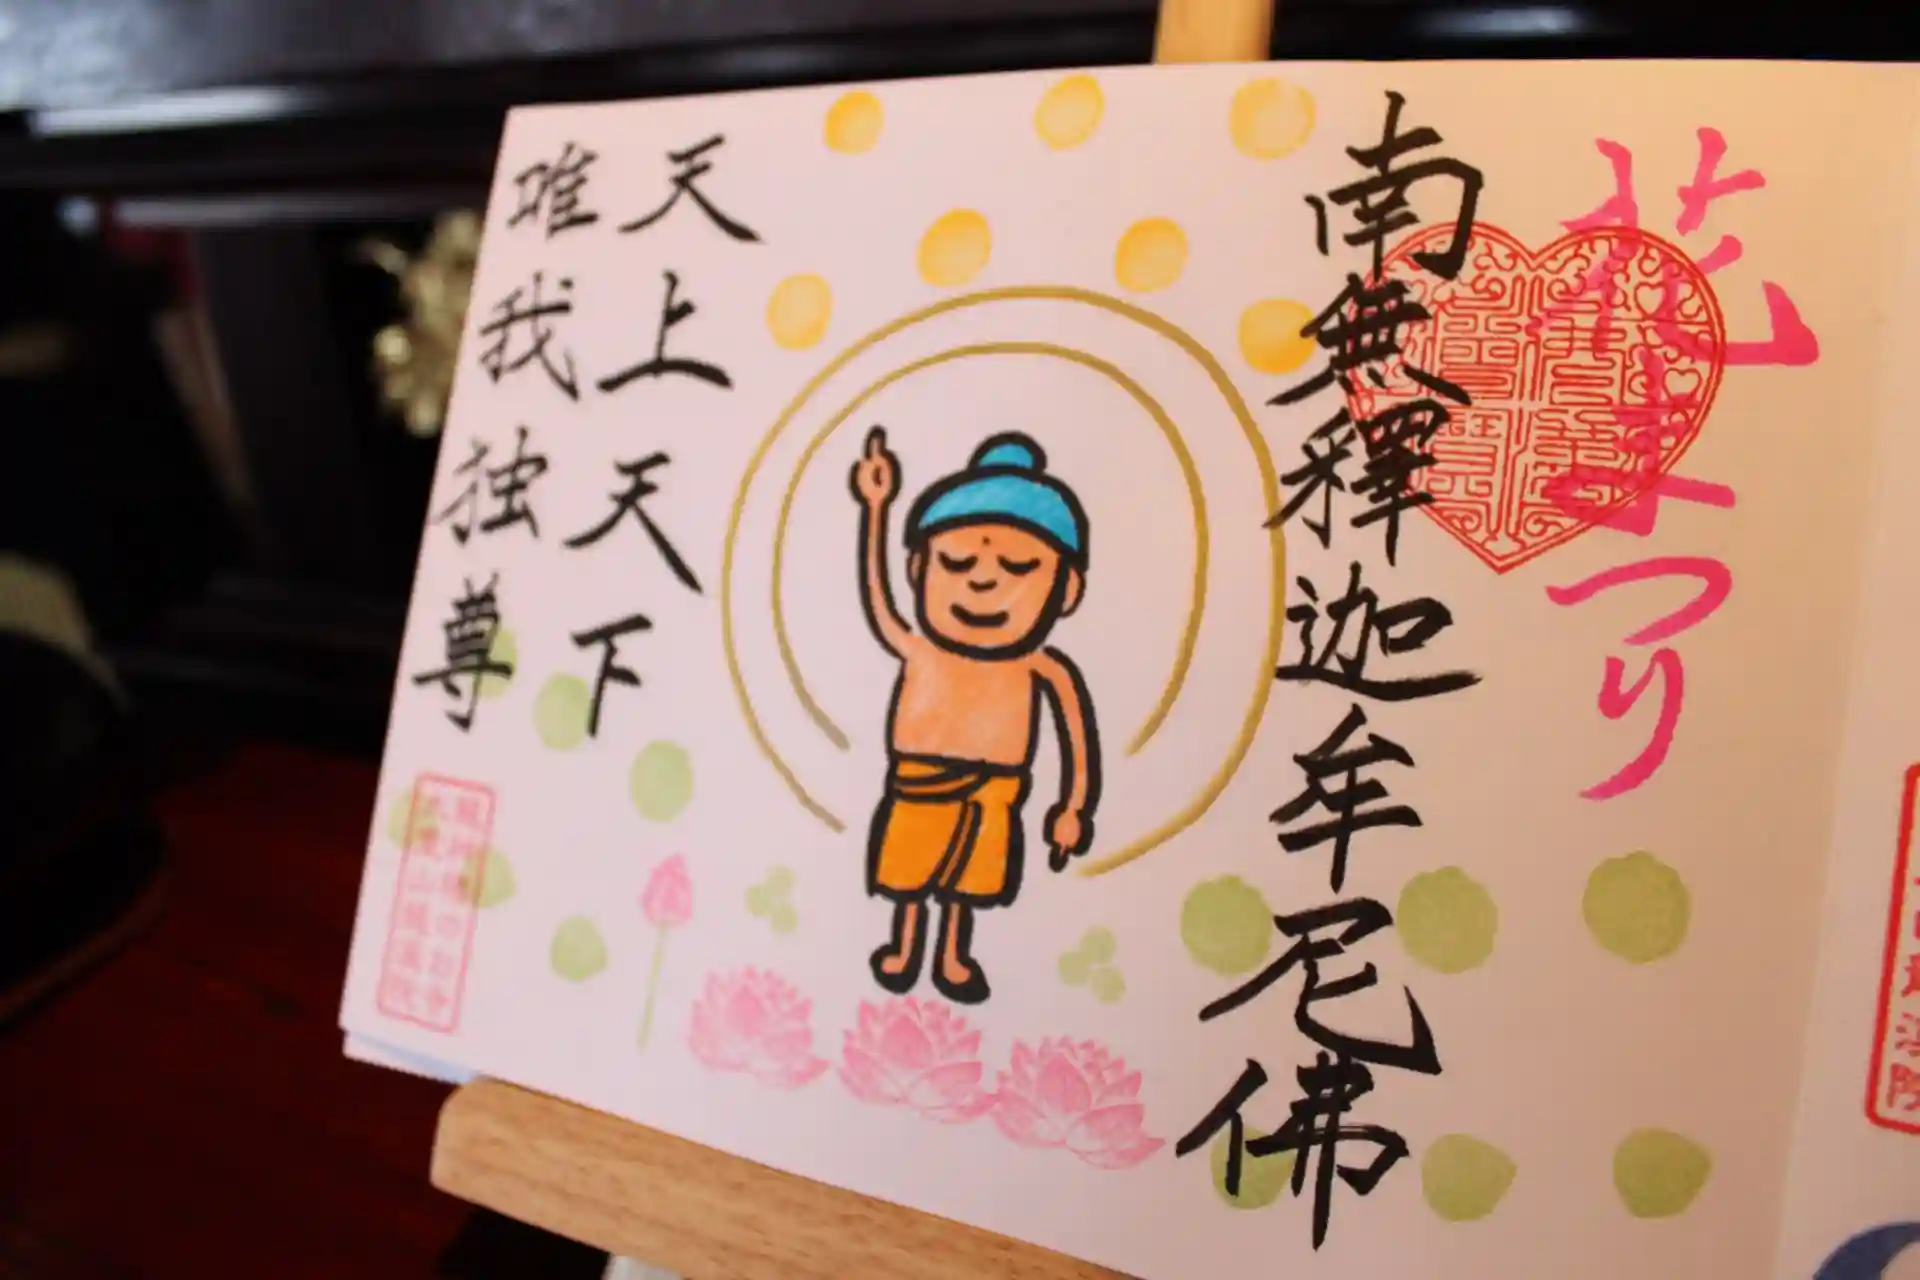 花まつり
南無釋迦牟尼佛
天上天下
唯我独尊